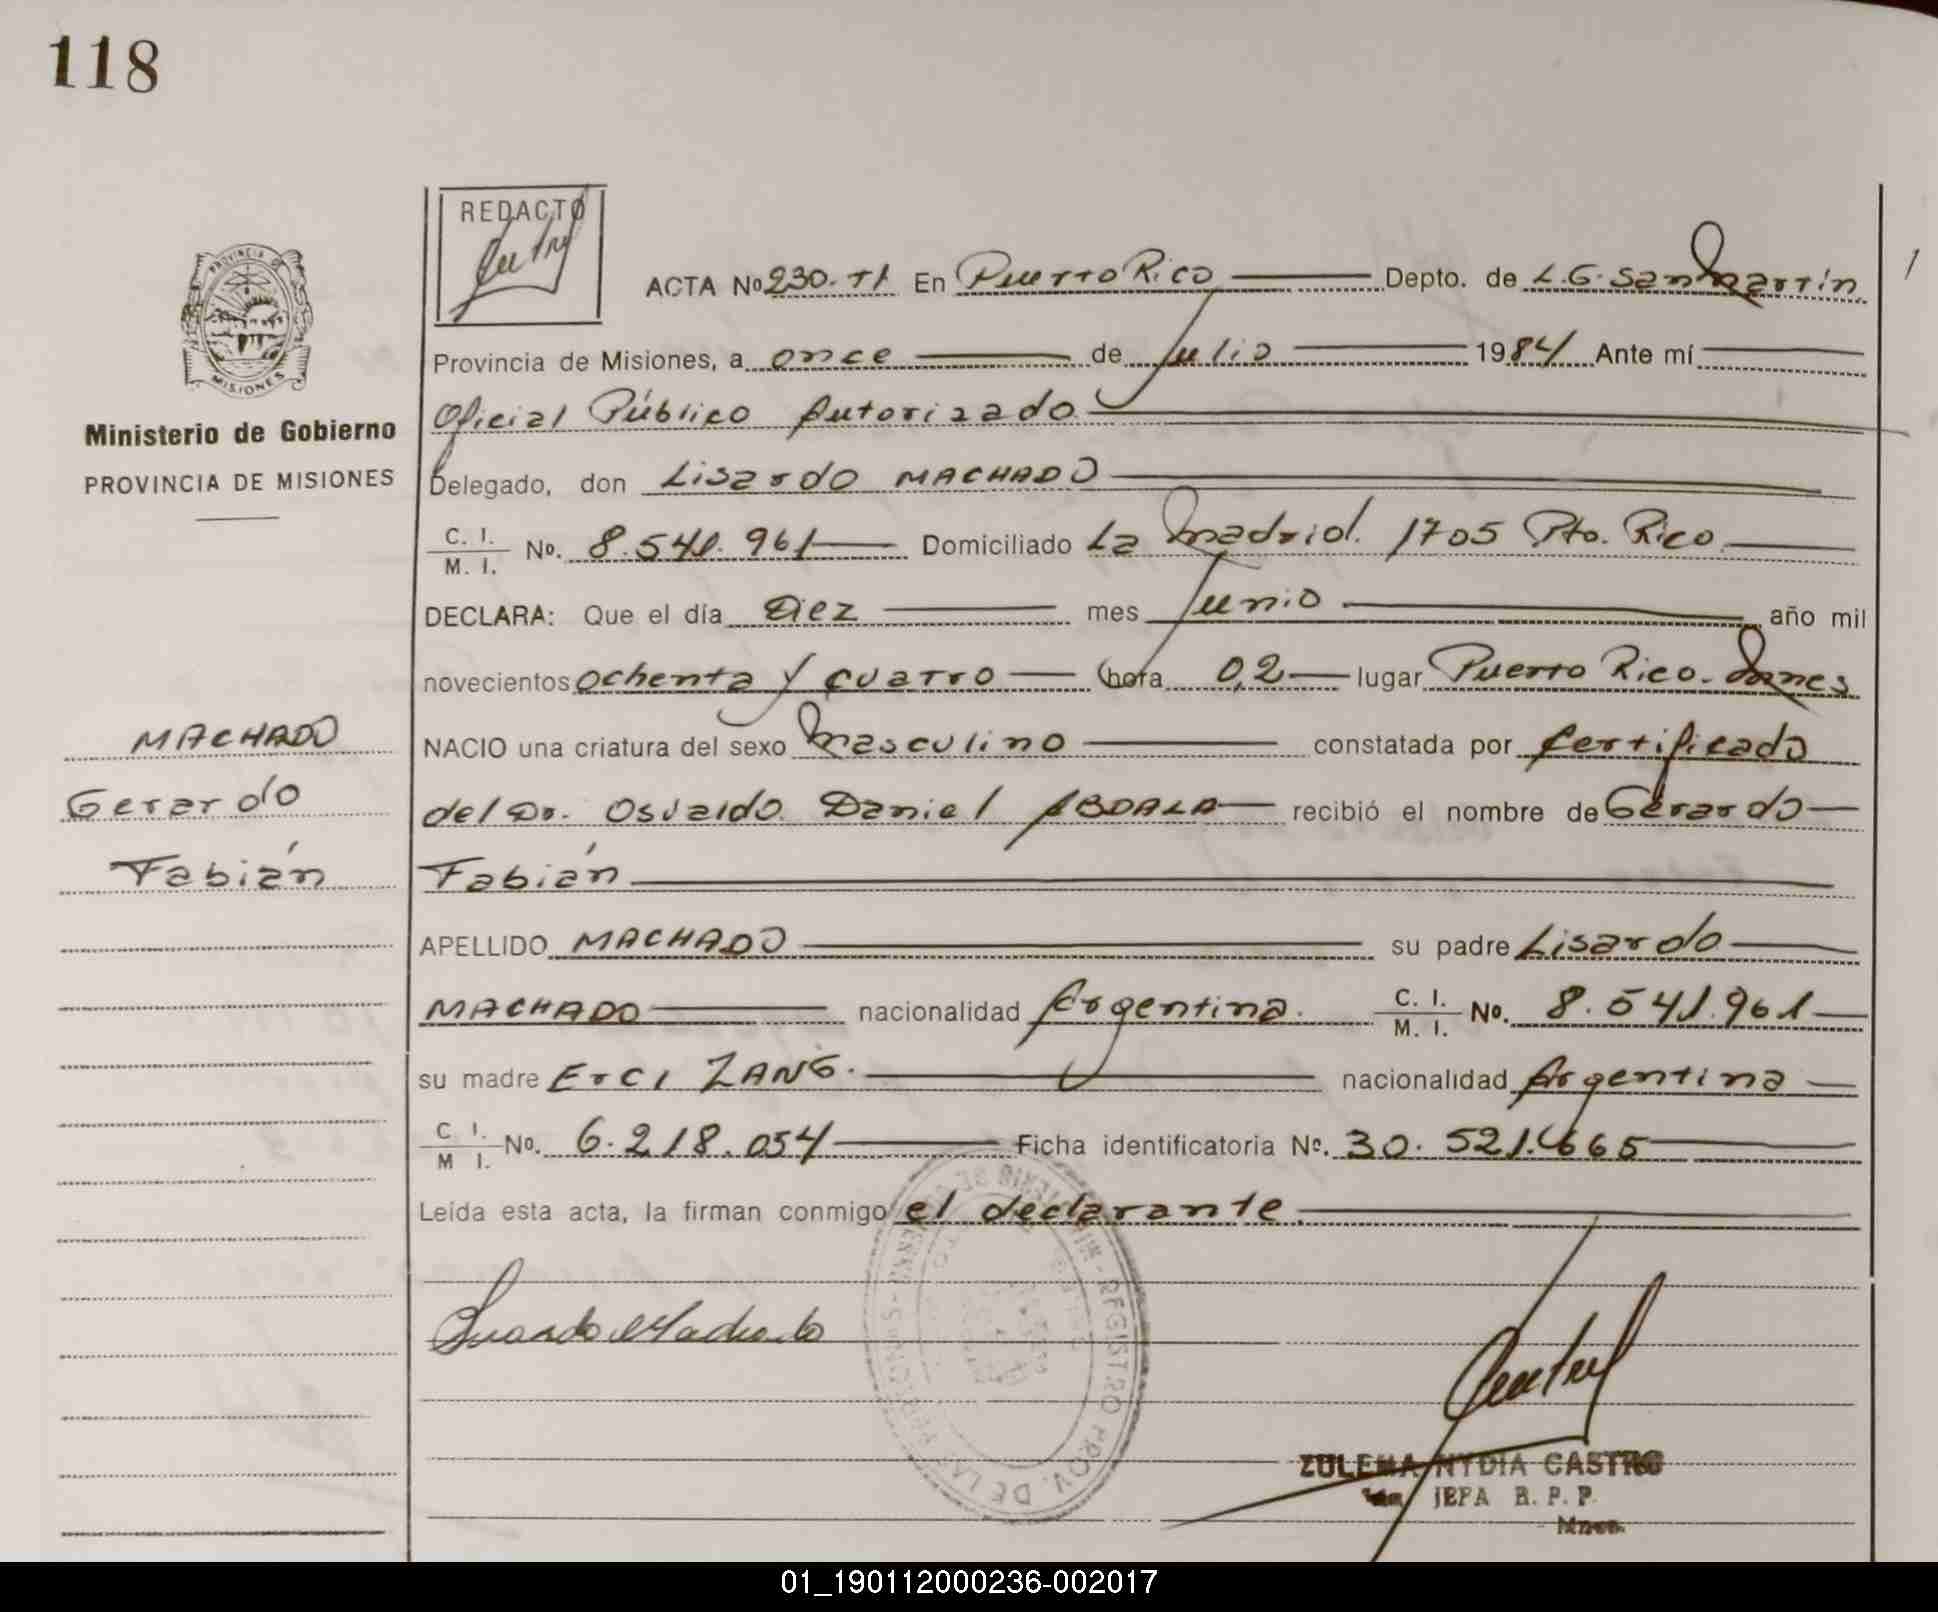 118
REDACTO
ACTA Nº 230. TI En Puerto Rico Depto. de L.G. San Martín
Provincia de Misiones, a once de Julio 1984 Ante mí
Oficial Público Autorizado
Delegado, don Lisardo MACHADO
C. I.
M. I. No. 8.541.961 Domiciliado La Madrid. 1705 Pto. Rico
DECLARA: Que el día Diez mes Junio año mil
novecientos ochenta y cuatro hora 0,2 lugar Puerto Rico. Mnes
NACIO una criatura del sexo Masculino constatada por Certificado
del Dr. Osvaldo Daniel ABDALA recibió el nombre de Gerardo
Fabián
APELLIDO MACHADO su padre Lisardo
MACHADO nacionalidad Argentina. C. I.
M. I. No. 8.541.961
su madre Erci ZANG. nacionalidad Argentina
C I.
M I. No. 6.218.054 Ficha identificatoria Nº. 30.521.665
Leída esta acta, la firman conmigo el declarante
Lisardo Machado
ZULEMA NYDIA CASTRO
JEFA R. P. P.
Mnes.
PROVINCIA DE
MISIONES
Ministerio de Gobierno
PROVINCIA DE MISIONES
MACHADO
Gerardo
Fabián
REGISTRO PROV. DE LAS PERSONAS
01_190112000236-002017